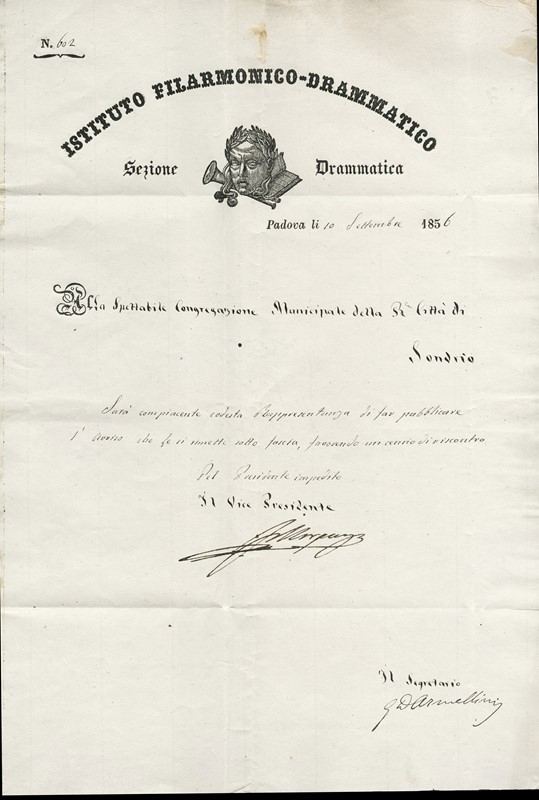 N. 602
ISTITUTO FILARMONICO-DRAMMATICO
Sezione Drammatica
Padova li 10 Settembre 1856
Alla Spettabile Congregazione Municipale della Rª Città di
Sondrio
Sarà compiacente codesta Rappresentanza di far pubblicare
l'avviso che le si rimette sotto fascia, favorendo un cenno di riscontro
Pel Presidente impedito
Il Vice Presidente
Il Segretario
G D Armellini